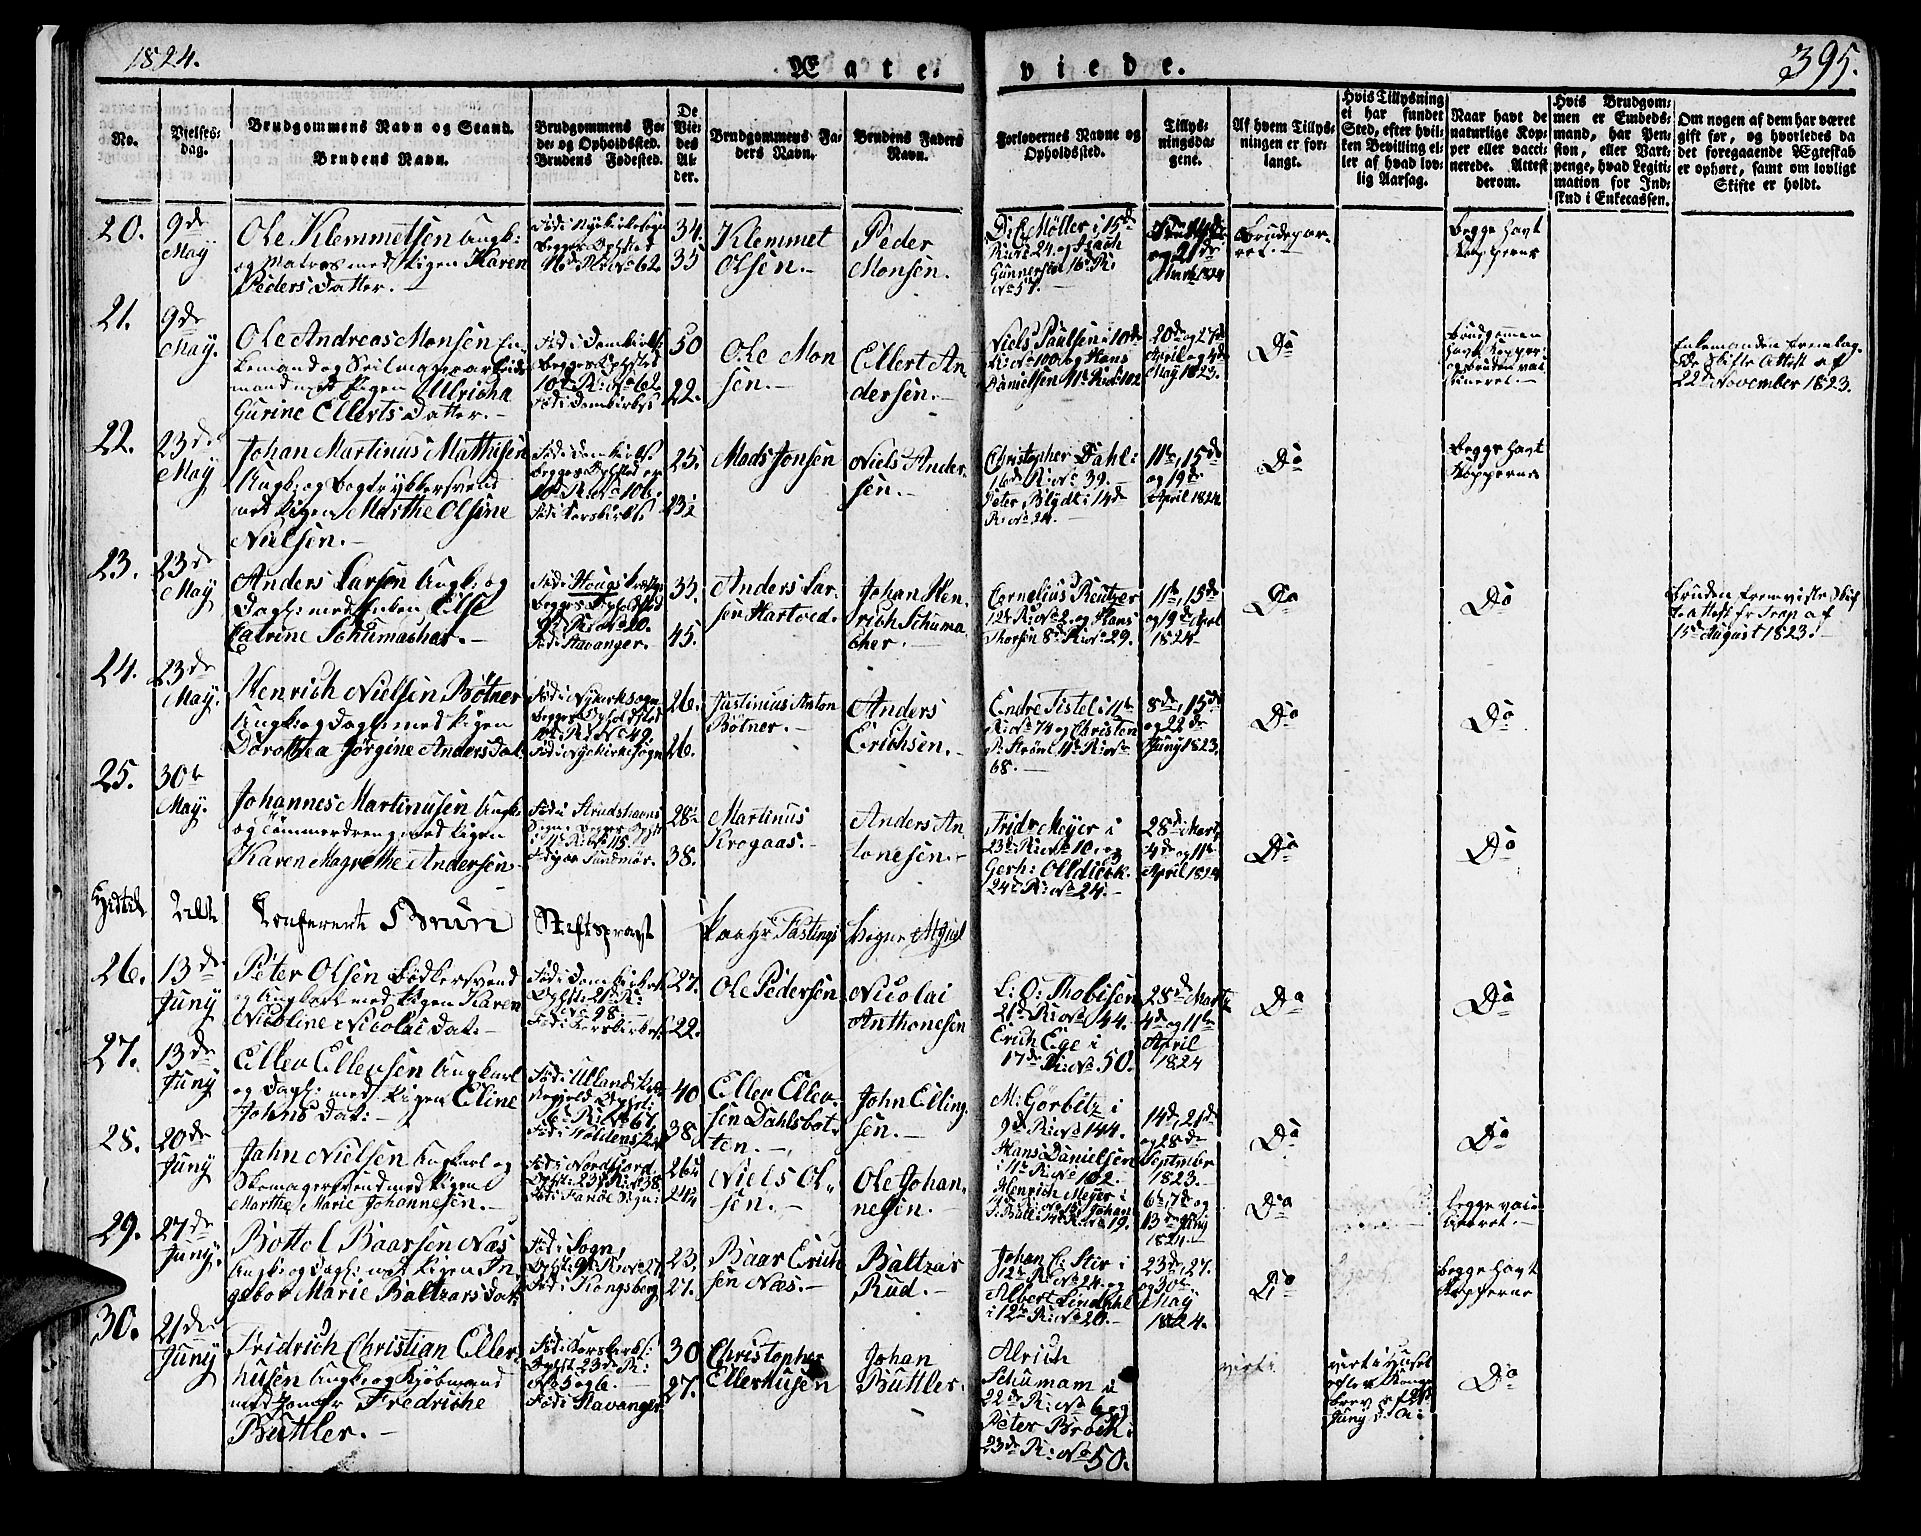 1824.
395.
Æ g t e
v i e d e .
No.
Vielses-
dag.
Brudgommens Navn og Stand.
Brudens Navn.
Brudgommens Fø-
de- og Opholdssted.
Brudens Fødested.
De
Vie-
des
Al-
der.
Brudgommens Fa-
ders Navn.
Brudens Faders
Navn.
Forlovernes Navne og
Opholdssted.
Tillys-
ningsda-
gene.
Af hvem Tillys-
ningen er for-
langt.
Hvis Tillysning
ei har fundet
Sted, efter hvil-
ken Bevilling el-
ler af hvad lov-
lig Aarsag.
Naar havt de
naturlige Kop-
per eller vacci-
nerede. Attest
derom.
Hvis Brudgom-
men er Embeds-
mand, har Pen-
sion, eller Vart-
penge, hvad Legiti-
mation for Ind-
skud i Enkecassen.
Om nogen af dem har været
gift før, og hvorledes da
det foregaaende Ægteskab
er ophørt, samt om lovligt
Skifte er holdt.
20.
9de
May
Ole Klemmetsen Ungk:
og Matros med Pigen Karen
Peders Datter. -
Fød i Nykirkesogn
begges Ophsted
16de R: No 62
34.
35
Klemmet
Olsen. -
Peder
Monsen.
Møller i 15de
R: No 24. og
Gunnersen 16de R:
No 57.
og 21de
Marts 1824
begge havt
Kopperne
21.
9de
May.
Ole Andreas Monsen En-
kemand og Seilmagerarbeids-
mand med Pigen Ullricha
Gurine Ellerts Datter. -
Fød i Domkirkes:
begges Ophsted
10de R: No 62
Fød i Domkirkes
50
22.
Ole Mon
sen. -
Ellert An
dersen. -
Niels Paulsen i 10de
R: No 100 og Hans
Danielsen 11te R: No 102
20de og 27de
April og 4de
May 1823.
Do
brudgommen
havt Kopper-
og bruden vac
sineret. -
Enkemanden fremlag-
de Skifte Attest af
22de November 1823.
22.
23de
May
Johan Martinus Mathisen
Ungk: og Bogtrykkersvend
med Pigen Marthe Olsine
Nielsen. -
Fød i Domkirkes
begges Ophsted er
10de R: No 106.
Fød i Korskirkes
25.
23½
Mads Jonsen
Niels Ander-
sen. -
Christopher Dahl i
16de R: No 39. -
Peter Blydt i 14de
R: No 24. -
11te, 15de
og 19de
April 1824
Do
begge havt
Kopperne
23.
23de
May
Anders Larsen Ungk: og
Dagk: med Enken Else
Catrine Schumacher. -
Fød i Hougs Præstg:
begges Ophsted
9de R: No 20.
Fød i Stavanger.
33.
45.
Anders Lar-
sen Hartved.
Johan Hen-
rich Schuma
cher. -
Cornelius Reutzer
12te R: No 2. og Hans
Thorsen 8de R: No 29.
11te, 15de
og 19de April
1824
Do
Do
bruden fremviste Skif
te Attest fr Trop af
15de August 1823. -
24.
23de
May.
Henrich Nielsen Bøtner
Ungk: og Dagk: med Pigen
Dorothea Jørgine Anders Dat.
Fød i Nykirksogn
begges Opholdsted
10de R: No 49.
Fød i Nyekirkesogn
26.
26.
Justinius Anton
Bøtner. -
Anders
Erichsen. -
Endre Tistel i 11te
R: No 74 og Christen
P: Strøm 11te R: No
68. -
8de, 15de
og 22de
Juny 1823.
Do
Do
25.
30te
May.
Johannes Martinusen Ungk:
og Tømmerdreng med Pigen
Karen Magrethe Andersen -
28
38.
Martinus
Krogaas. -
Anders An
tonesen. -
Fridr Meyer i
23de R: No 10. og
Gerh: Olldieck
24de R: No 24. -
28de Marts
4de og 11te
April 1824
Do
Do
Conferert Bruun
Stiftsprovst
26.
13de
Juny
Peter Olsen Bødkersvend
og Ungkarl med Pigen Karen
Nicoline Nicolai Dat: -
Fød i Domkirkes
Ophst: 21de R:
No 98. -
Fød i Korskirkes:
27.
22.
Ole Pedersen
Nicolai
Anthonesen
L: O: Thobisen
21de R: No 44.
Erich Ege i
17de R: No 50.
28de Marts
4de og 11te
April
1824
Do
Do
27.
13de
Juny
Ellev Ellevsen Ungkarl
og Dagk: med Pigen Eline
Johns Dat: -
40
38.
Ellev Ellev-
sen Dahlsbot-
ten. -
John Elling-
sen. -
M: Görbitz i
9de R: No 144.
Hans Danielsen
i 11te R: No 102.
14de, 21de
og 28de
September
1823.
Do
Do
28.
20de
Juny
Jahn Nielsen Ungkarl og
Skomagersvend med Pigen
Marthe Marie Johannesen. -
Fød i Nordfjord
Ophst: 23de R: No 38
26¼
24¼
Niels Ol-
sen. -
Ole Johan-
nesen. -
Henrich Meyer i
Johan
14de R: No 19.
6te, 7de og
13de Juny
1824. -
Do
begge vaci
neret. -
29.
27de
Juny.
Bottol Baarsen Næs
Ungk: og Dagk: med Pigen In-
gebor Marie Baltzars Dat:
Fød i Sogn,
Ophst: 9de R: No 27
Fød i Kongsberg
23.
27.
Baar Erich
sen Næs. -
Baltzar
Rud. -
Johan C. Stir i
12te R: No 24. og
Albert Lindahl
i 12te R: No 20. -
23de, 27.
og 30te
May
1824.
Do
begge havt
Kopperne
30.
21de
Juny
Fridrich Christian Eller-
husen Ungk: og Kjøbmand
med Jomfr Fredriche
Büttler. -
Fød i Korskirkes:
Ophst 23de R:
No 5 og 6. -
Fød i Stavanger
30
27.
Christopher
Ellerhusen
Johan
Büttler.
Alrich
Schumam i
22de R: No 6 og
Peter Brock i
23de R: No 50.
viet i
viet i Huset
efter Konge
brev af 21de
Juny d: A:
Do